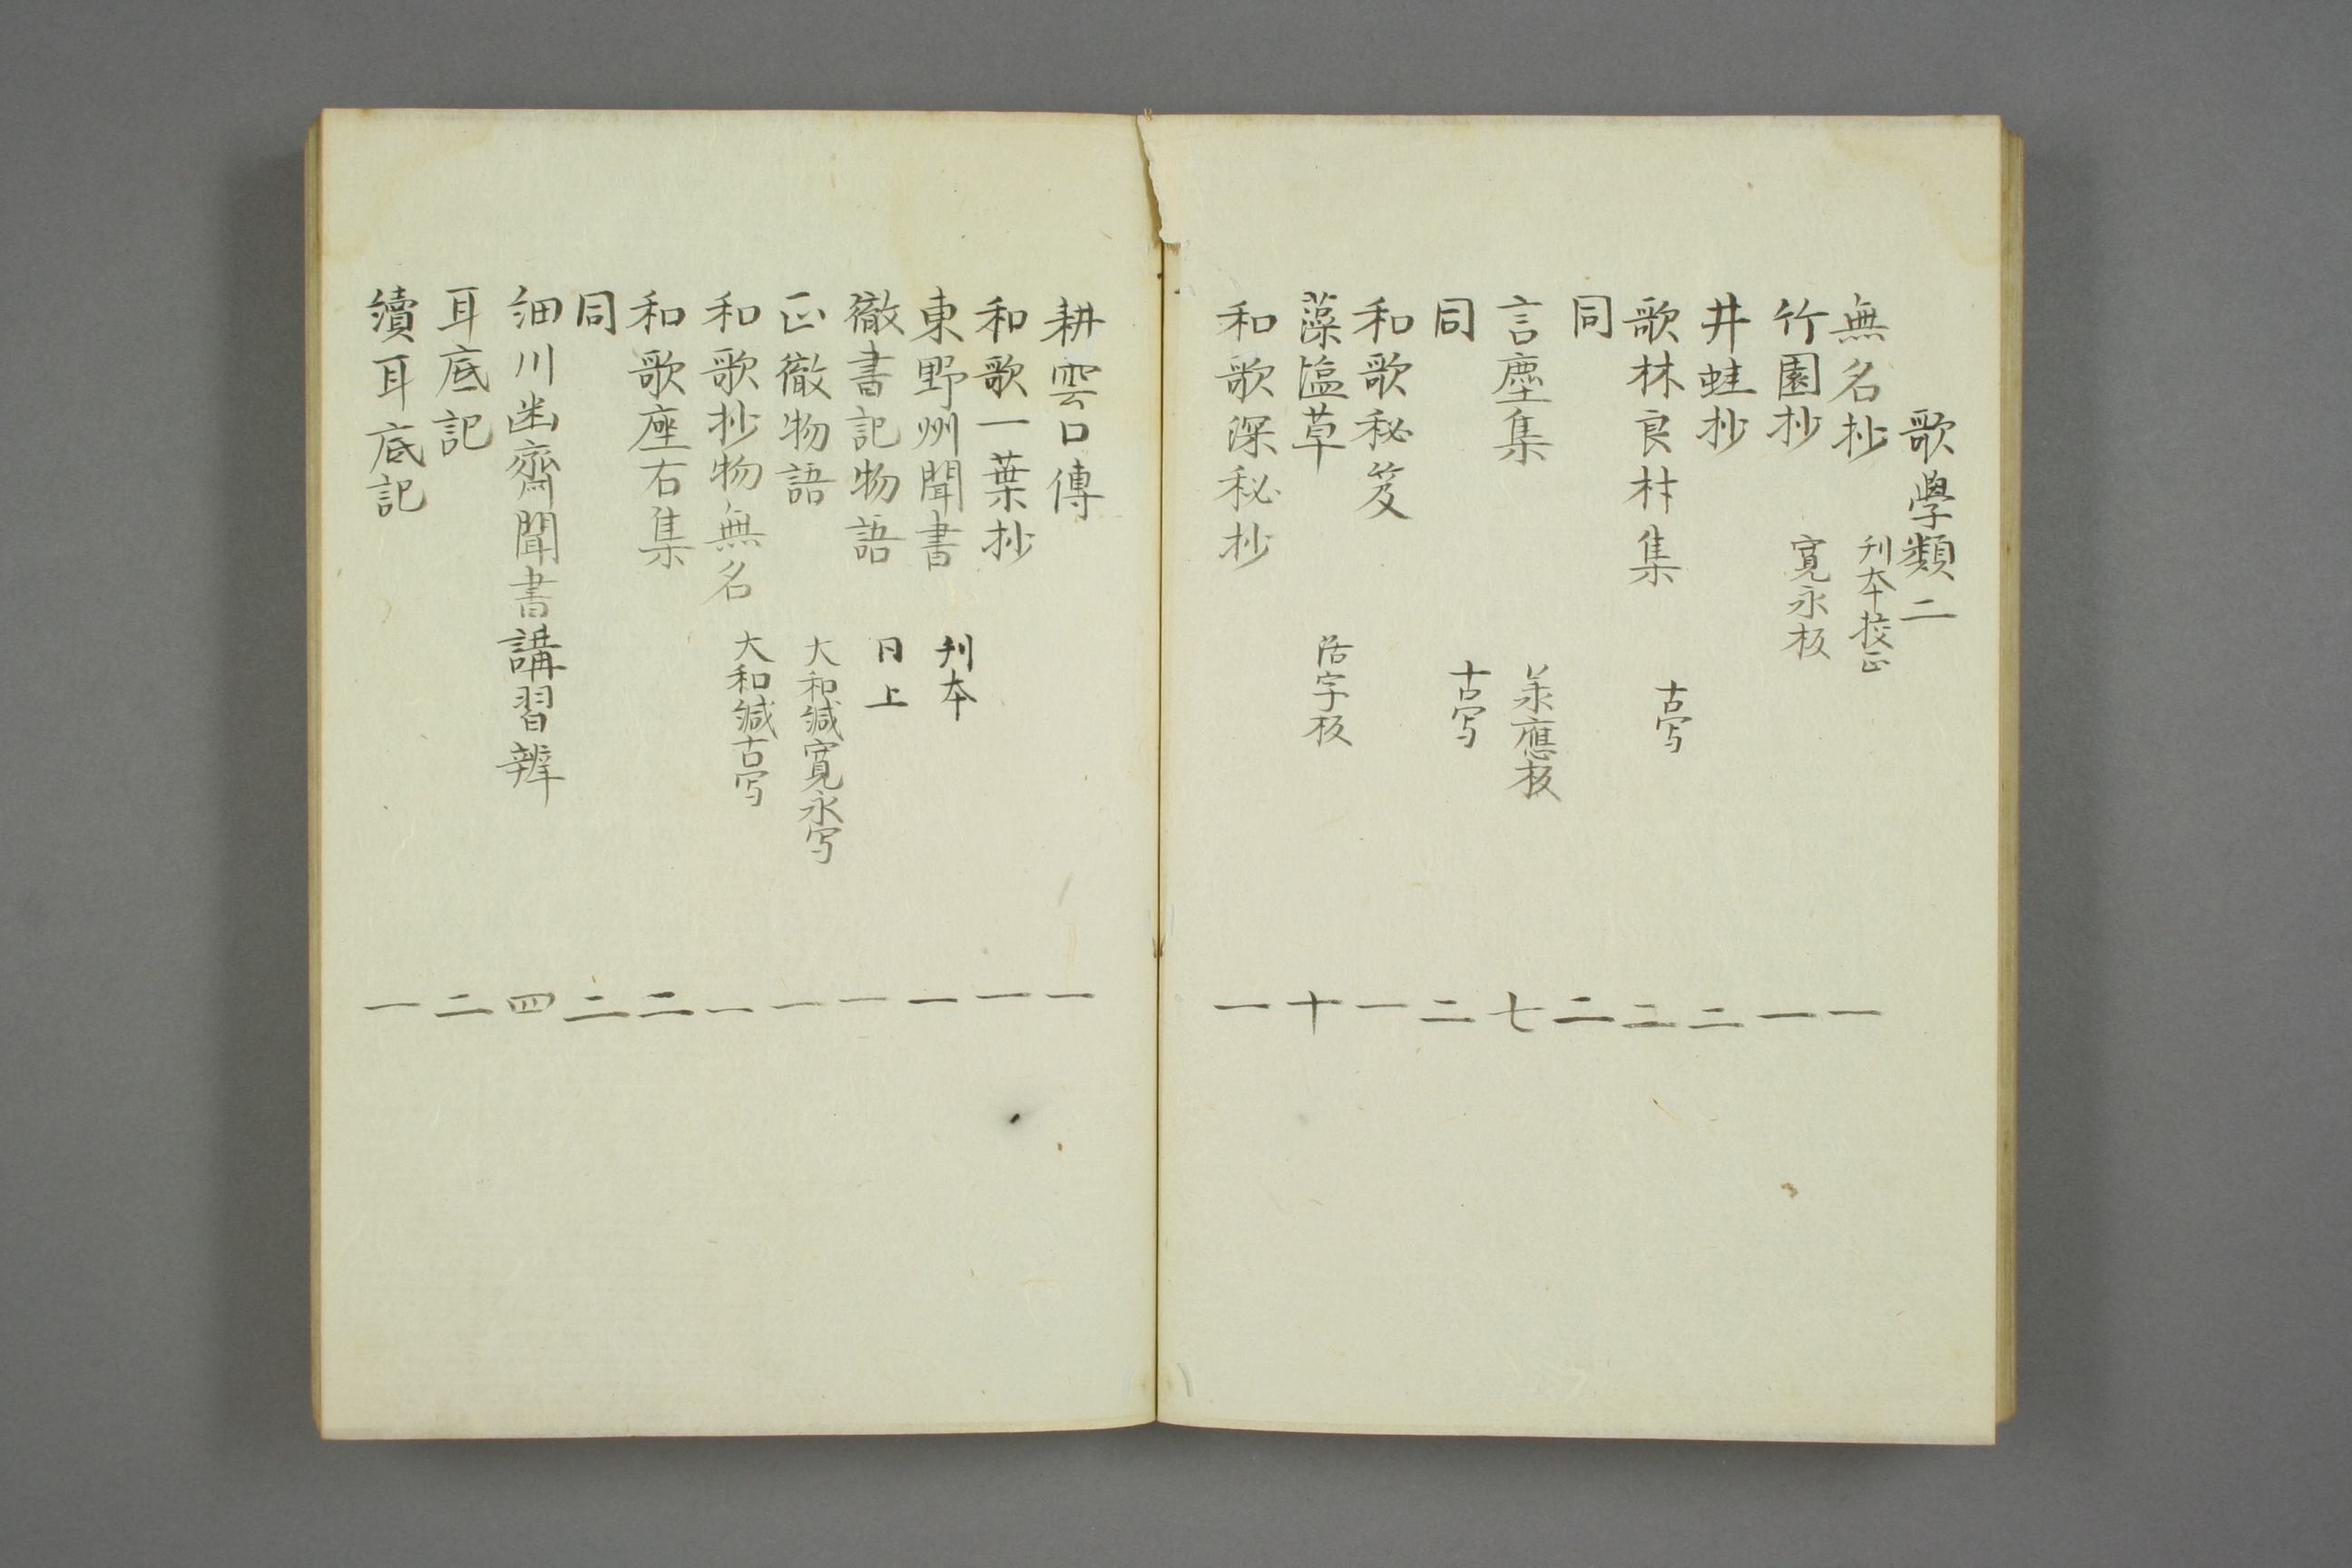 歌學類二
無名抄 刋本挍正 一
竹園抄 寛永板 一
井蛙抄 二
歌林良材集 古写 二
同 二
言塵集 承應板 七
同 古写 二
和歌秘笈 一
藻塩草 活字板 十
和歌深秘抄 一
耕雲口傳 一
和歌一葉抄 一
東野州聞書 刋本 一
徹書記物語 同上 一
正徹物語 大和綴寛永写 一
和歌抄物無名 大和綴古写 一
和歌座右集 二
同 二
細川幽齋聞書講習辨 四
耳底記 二
續耳底記 一